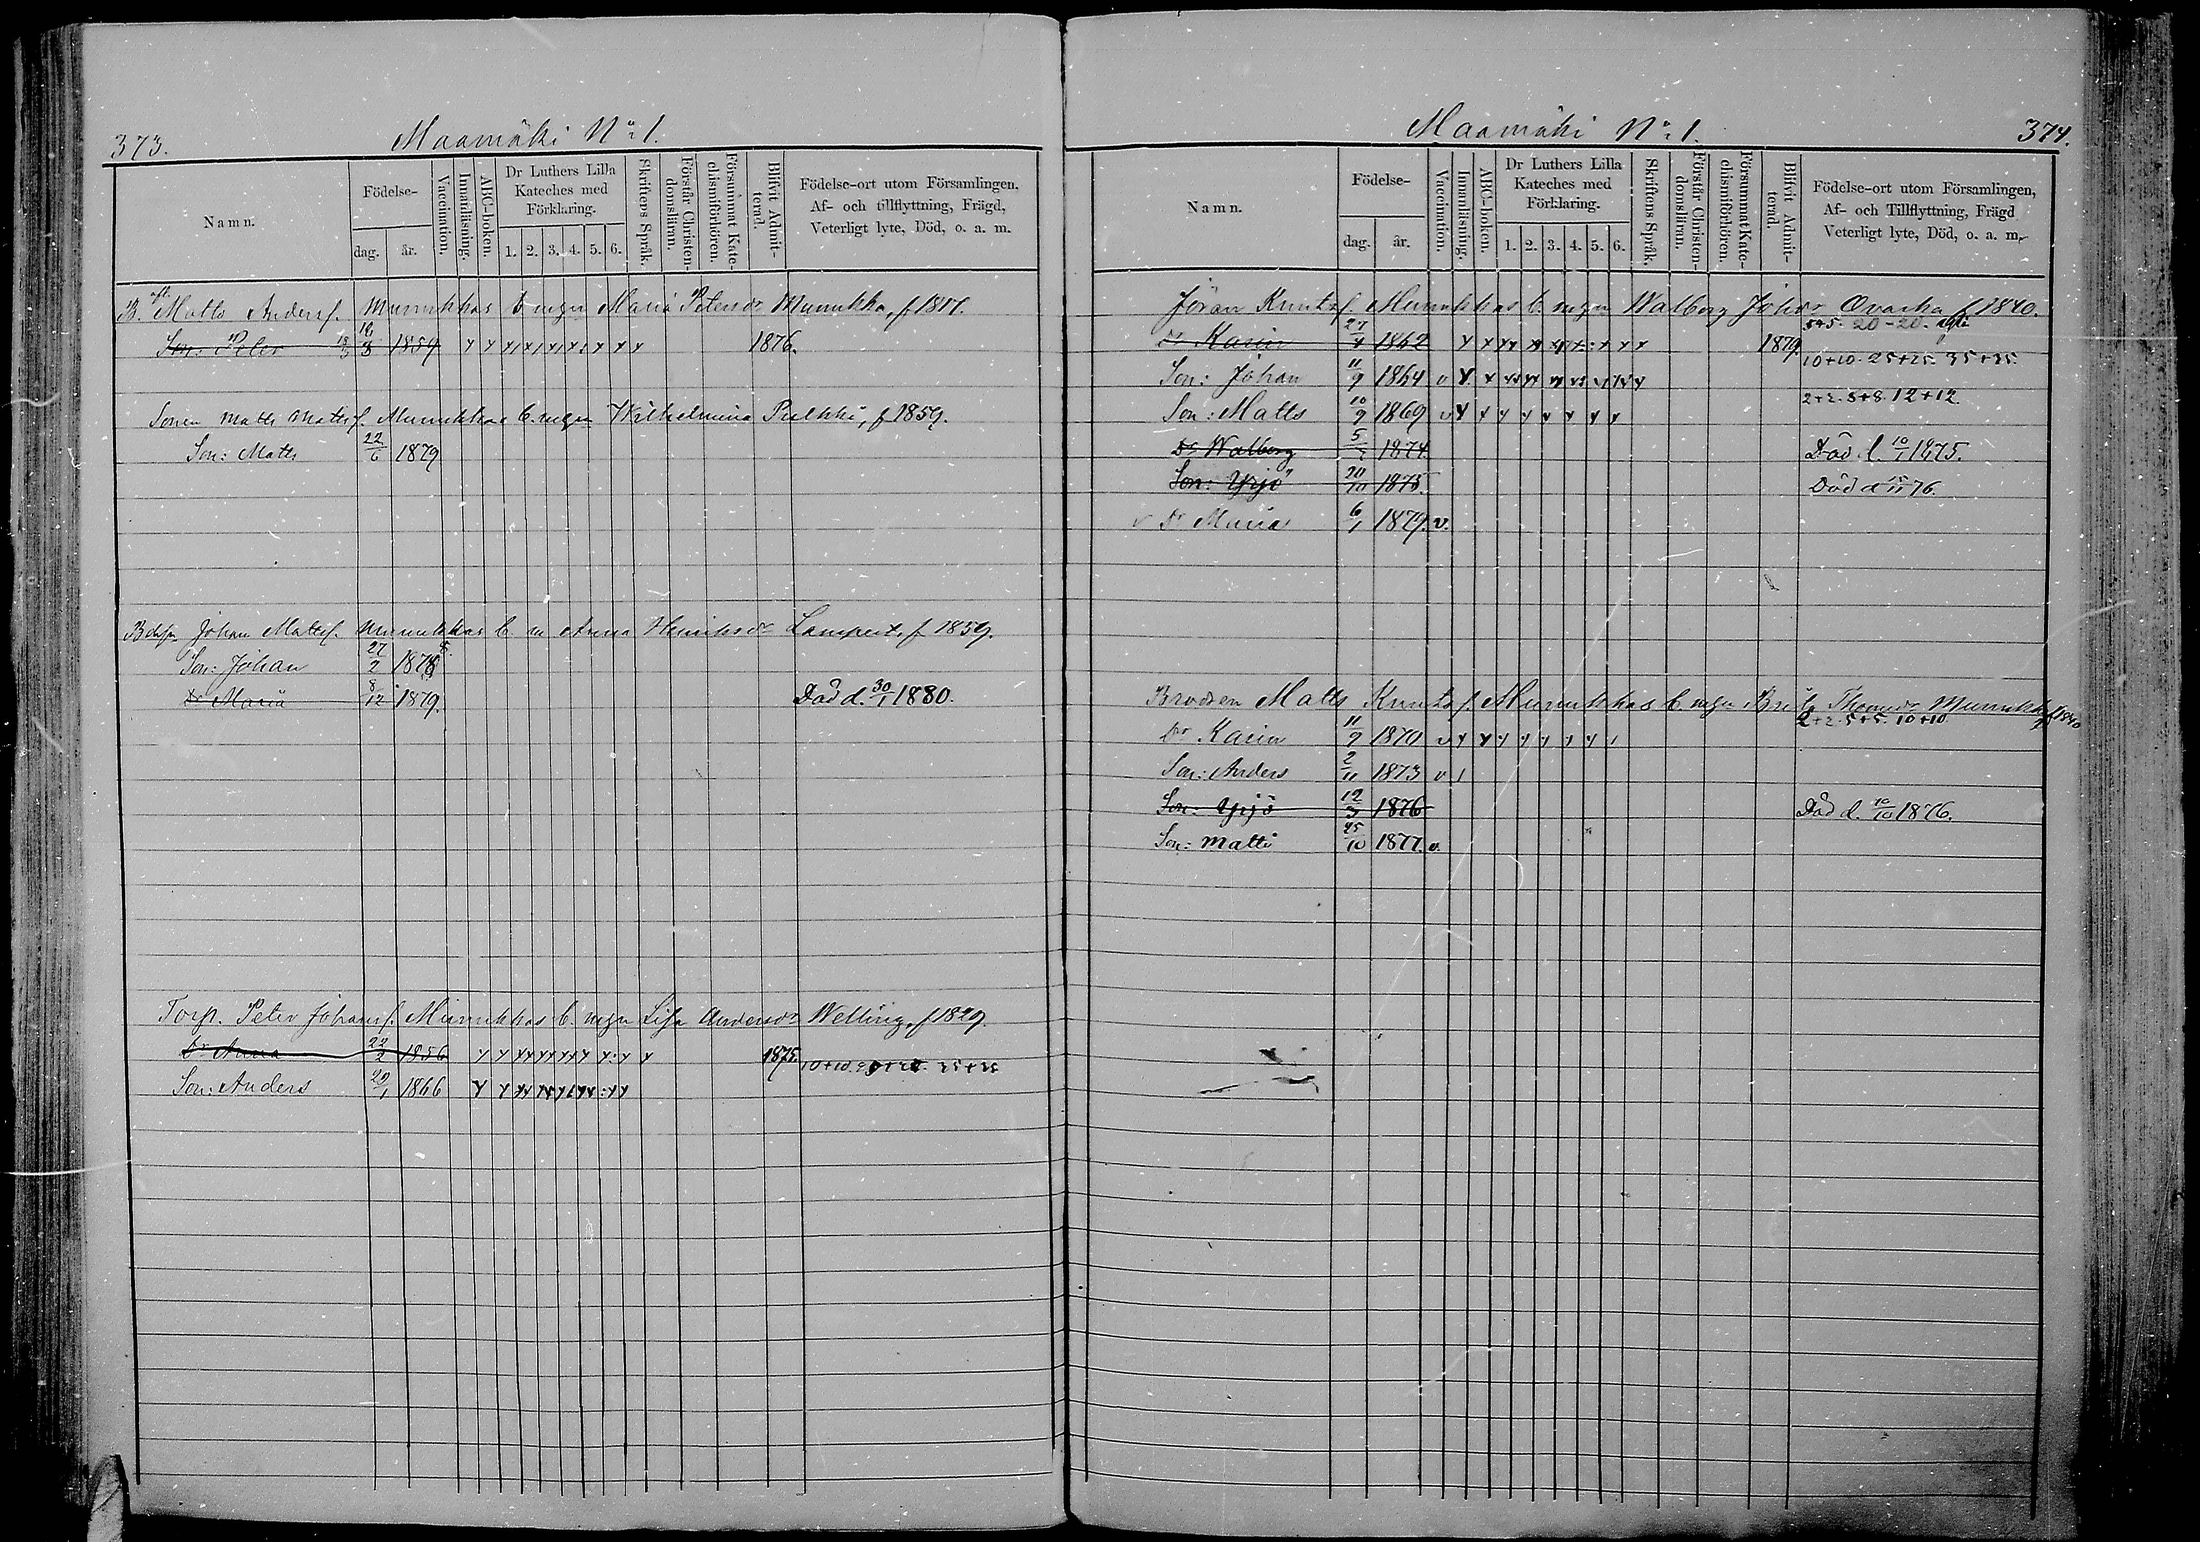 373.
Maamäki No 1.
Namn.
Födelse-
dag.
år.
Vaccination.
Innanläsning.
ABC-boken.
Dr Luthers Lilla
Kateches med
Förklaring.
1. 2. 3. 4. 5. 6.
Skriftens Språk.
Förstår Christen-
domsläran.
Försummat Kate-
chismiförhören.
Blifvit Admit-
terad.
Födelse-ort utom Församlingen,
Af- och tillflyttning, Frägd,
Veterligt lyte, Död, o. a. m.
Matts Andersf. Munukkas b. m egn Maria Petersdr Munukka, f 1817.
Son: Peter 1859 1876.
Sonen Matts Mattsf. Munukkas b. m egn Wilhelmina Pulkki, f 1859.
Son: Matts 22/6 1879
Johan Mattsf. Munukkas b m Anna Henriksdr Lampert, f 1859.
Son: Johan 27/2
Dr Maria 8/12 1879. Död d. 30/1 1880.
Torp. Peter Johansf. Munukkas b. m egn Lisa Andersdr Welling, f 1829.
Dr Anna 22/2 1856 1875.
Son: Anders 20/1 1866
Maamäki No 1.
374.
Namn.
Födelse-
dag.
år.
Vaccination.
Innanläsning.
ABC-boken.
Dr Luthers Lilla
Kateches med
Förklaring.
1. 2. 3. 4. 5. 6.
Skriftens Språk.
Förstår Christen-
domsläran.
Försummat Kate-
chismiförhören.
Blifvit Admit-
terad.
Födelse-ort utom Församlingen,
Af- och Tillflyttning, Frägd
Veterligt lyte, Död, o. a. m.
Jöran Knutsf. Munukkas b. m egn Walborg Johdr f 1840.
Dr Karin 27/4 1862 1879. 10+10. 25+25. 35+35
Son: Johan 11/9 1864
Son: Matts 10/9 1869 2+2. 8+8. 12+12.
Dr Walborg 1874 Död d. 10/1 1875.
Son: Yrjö 20/10 1875. Död d 76.
v Dr Maria 6/1 1879. v.
Brodren Matts Knutsf Munukkas b. m egn Thomasdr Munukka f 1840
Dr Karin 11/9 1870 2+2. 5+5. 10+10
Son: Anders 2/11 1873 v
Son: Yrjö 12/3 1876 Död d. 10/10 1876.
Son: Matti 25/10 1877. v.